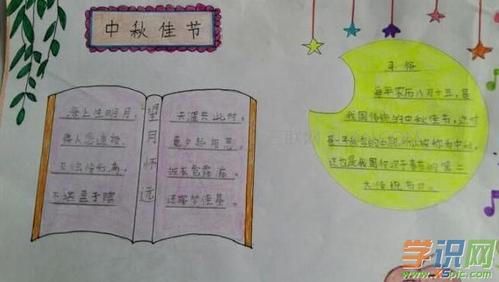 中秋佳节
望月怀远
海上生明月，
天涯共此时。
竟夕起相思。
不堪盈手赠
还寝梦佳期。
来历
每年农历八月十五，是
我国传统的中秋佳节。这时
是一年秋季的中期，所以被称为中秋。
这也是我国仅次于春节的第二
大传统节日。
学识网
www.XSpic.com